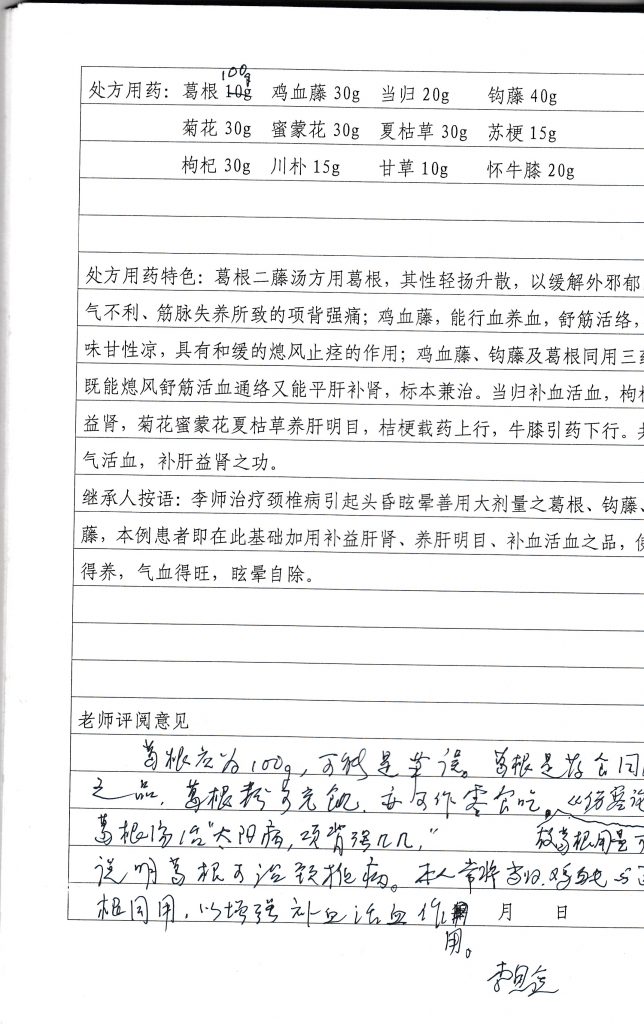 100g
处方用药：葛根 10g 鸡血藤 30g 当归 20g 钩藤 40g
菊花 30g 蜜蒙花 30g 夏枯草 30g 苏梗 15g
枸杞 30g 川朴 15g 甘草 10g 怀牛膝 20g
处方用药特色：葛根二藤汤方用葛根，其性轻扬升散，以缓解外邪郁
气不利、筋脉失养所致的项背强痛；鸡血藤，能行血养血，舒筋活络，
味甘性凉，具有和缓的熄风止痉的作用；鸡血藤、钩藤及葛根同用三药
既能熄风舒筋活血通络又能平肝补肾，标本兼治。当归补血活血，枸杞
益肾，菊花蜜蒙花夏枯草养肝明目，桔梗载药上行，牛膝引药下行。共
气活血，补肝益肾之功。
继承人按语：李师治疗颈椎病引起头昏眩晕善用大剂量之葛根、钩藤、
藤，本例患者即在此基础加用补益肝肾、养肝明目、补血活血之品，使
得养，气血得旺，眩晕自除。
老师评阅意见
葛根应为100g，可能是笔误。葛根是药食同
之品，葛根粉可充饥，亦可作零食吃。《伤寒论
葛根汤治“太阳病，项背强几几，” 故葛根用量可
说明葛根可治颈椎病。本人常将当归、鸡血
相同用，以增强补血活血作 月 日
用。